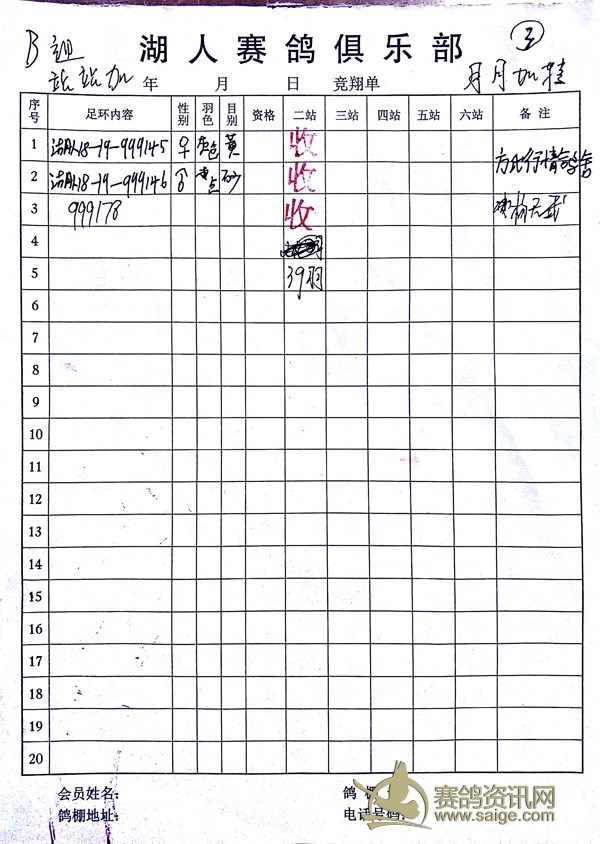 B组 湖人赛鸽俱乐部 ③
站站加 年 月 日 竞翔单 月月加
序号 足环内容 性别 羽色 目别 资格 二站 三站 四站 五站 六站 备注
1 湖018-19-999145 ♀ 灰色 黄 收
2 18-19-999146 点 砂 收
3 999178 收
4
5 39羽
6
7
8
9
10
11
12
13
14
15
16
17
18
19
20
会员姓名: 鸽棚
鸽棚地址: 电话号码:
赛鸽资讯网
www.saige.com